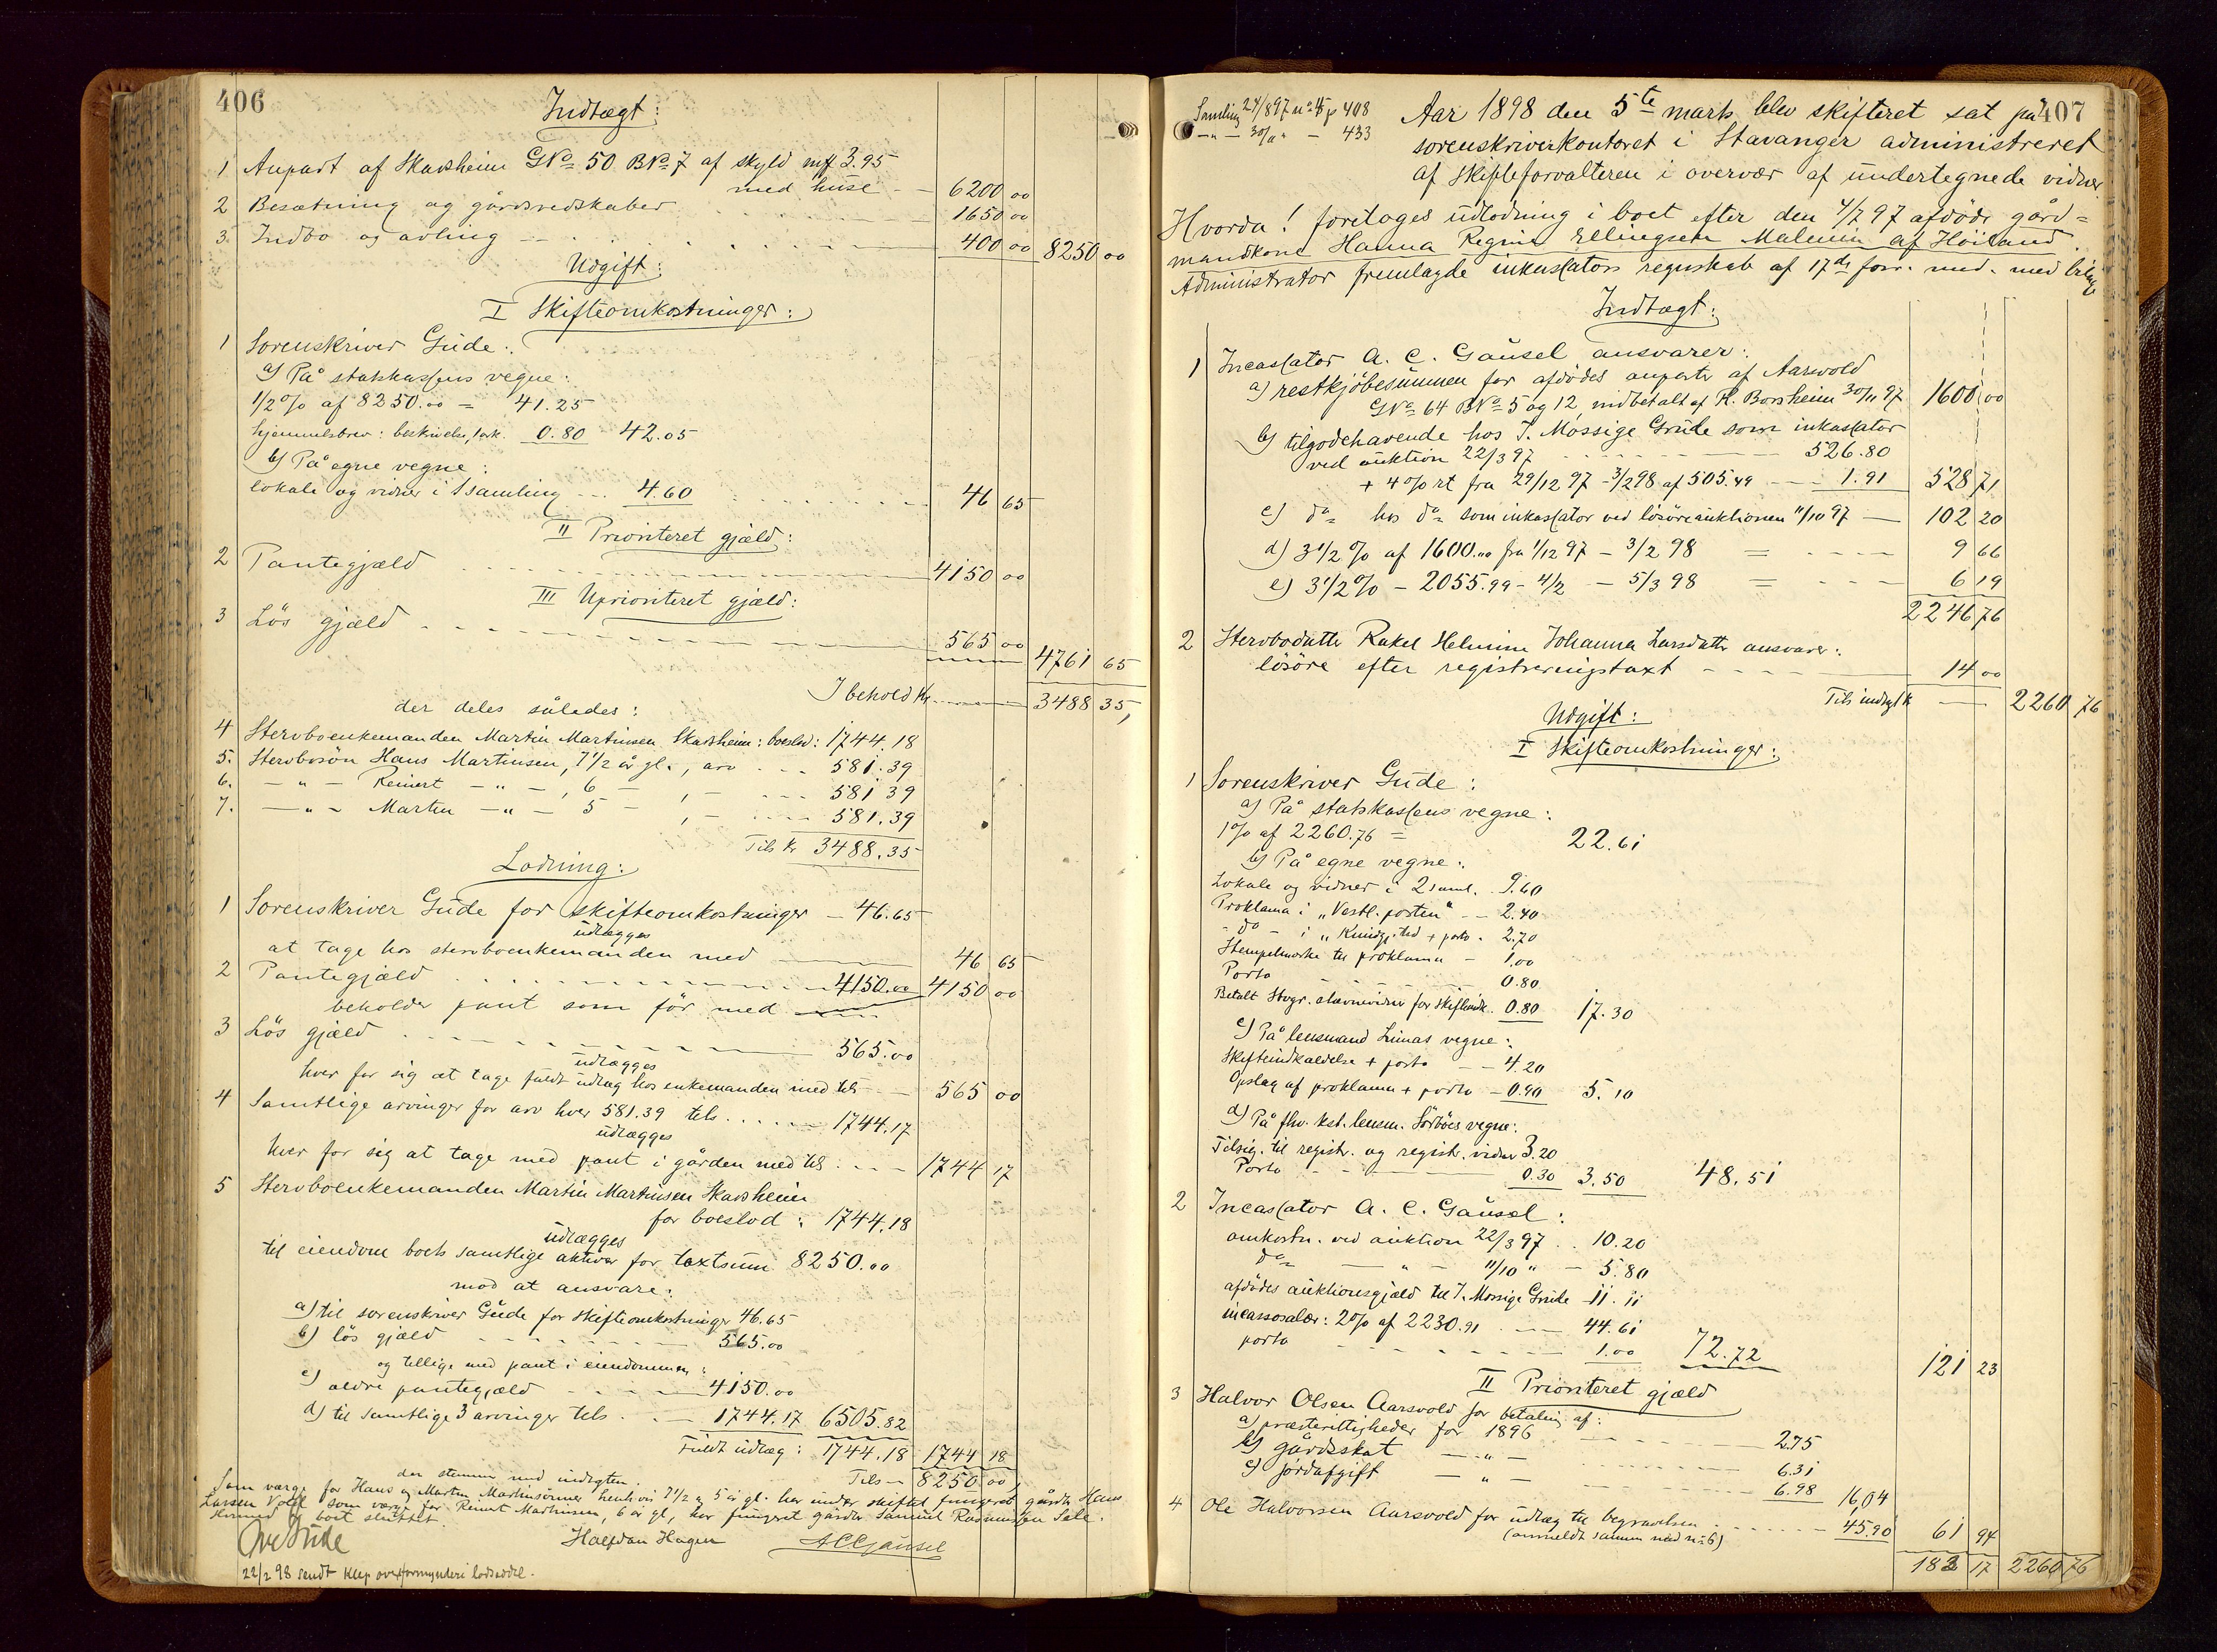 406
Indtægt:
1 Anpart af Skasheim GNo 50 BNo 7 af skyld mk 3.95
med huse - - 6200 00
2 Besætning og gårdsredskaber - - - 1650 00
3. Indbo og avling - - - 400 00 8250 00
Udgift:
I Skifteomkostninger:
1 Sorenskriver Gude:
a) På statskassens vegne:
1/2 % af 8250.00 = 41.25
hjemmelsbrev: beskrivelse, 1 ark. 0.80 42.05
b) På egne vegne:
lokale og vidner i 1 samling - - 4.60 46 65
II Prioriteret gjæld:
2 Pantegjæld - - - 4150 00
III Uprioriteret gjæld:
3 Lös gjæld - - - 565 00 4761 65
I behold Kr. 3488 35,
der deles således:
4 Stervboenkemanden Martin Martinsen Skasheim: boeslod: 1744.18
5. Stervbosön Hans Martinsen, 7 1/2 år gl., arv - - - 581.39
6. - " - Reinert - " -, 6 - , - - - 581 39
7. - " - Martin - " - 5 - , - - - 581.39
Tils kr 3488.35
Lodning:
1 Sorenskriver Gude for skifteomkostninger - 46.65
udlægges
at tage hos stervboenkemanden med 46 65
2 Pantegjæld - - - 4150.00 4150 00
beholder pant som för med
3 Lös gjæld - - - 565.00
udlægges
hver for sig at tage fuldt udlæg hos enkemanden med tils - - 565 00
4 Samtlige arvinger for arv hver 581.39 tils. - - - 1744.17
udlægges
hver for sig at tage med pant i gården med tils - - - 1744 17
5 Stervboenkemanden Martin Martinsen Skasheim
for boeslod: 1744.18
udlægges
til eiendom boets samtlige aktiver for taxtsum 8250.00
mod at ansvare:
a) til sorenskriver Gude for skifteomkostninger 46.65
b) lös gjæld - - - 565.00
og tillige med pant i eiendommen:
c) ældre pantegjæld - - - 4150.00
d) til samtlige 3 arvinger tils. - - 1744.17 6505.82
Fuldt udlæg: 1744.18 1744 18
der stemmer med indtægten. Tils - 8250 00
Som værge for Hans og Martin Martinsönner henh.vis 7 1/2 og 5 år gl. har under skiftet fungeret gårdbr. Hans
Larsen Voll som værge for Reinert Martinsen, 6 år gl., har fungeret gårdbr Samuel Rasmussen Sele.
Hermed er boet sluttet.
Ove Gude Halfdan Hagen A C Gausel
22/2 98 sendt Klep overformynderi lodseddel.
407
Samling 24/8 97 no 45 p 408
- " - 30/11 " - 433
Aar 1898 den 5te marts blev skifteret sat på
sorenskriverkontoret i Stavanger administreret
af skifteforvalteren i overvær af undertegnede vidner
Hvorda! foretoges udlodning i boet efter den 4/7 97 afdöde gård=
mandskone Hanna Regine Ellingsen Malmin af Höiland.
Administrator fremlagde inkassators regnskab af 17de forr. md. med bilage
Indtægt:
1 Incassator A. C. Gausel ansvarer:
a) restkjöbesummen for afdödes anparter af Aarsvold
GNo 64 BNo 5 og 12, indbetalt af R. Borsheim 30/11 97 1600 00
b) tilgodehavende hos T. Mossige Grude som inkassator
ved auktion 22/3 97 - - - 526.80
+ 4 % rt fra 29/12 97 - 3/2 98 af 505.49 - - 1.91 528 71
c) do hos do som inkassator ved lösöreauktionen 11/10 97 - 102 20
d) 3 1/2 % af 1600.00 fra 1/12 97 - 3/2 98 = - - - 9 66
e) 3 1/2 % - 2055.99 - 4/2 - 5/3 98 = - - - 6 19
2246 76
2 Stervbodatter Rakel Helmine Johanna Larsdatter ansvarer:
lösöre efter registreringstaxt - - - 14 00
Tils indtægt k - 2260 76
Udgift:
I Skifteomkostninger:
1 Sorenskriver Gude:
a) På statskassens vegne:
1 % af 2260.76 = 22.61
b) På egne vegne:
Lokale og vidner i 2 saml. 9.60
Proklama i "Vestl. posten" - - 2.40
- do - i "Kundgj. tid + porto - 2.70
Stempelmærke til proklama - 1.00
Porto - - - 0.80
Betalt Stvgr. stævnevidner for skifteindk. 0.80 17.30
c) På lensmand Limas vegne:
Skifteindkaldelse + porto - - 4.20
Opslag af proklama + porto - 0.90 5.10
d) På fhv. kst. lensm. Sörböes vegne:
Tilsig. til registr. og registr. vidner 3.20
Porto - - - 0.30 3.50 48.51
2 Incassator A. C. Gausel:
omkostn. ved auktion 22/3 97 . . 10.20
do - " - 11/10 " - 5.80
afdödes auktionsgjæld til T. Mossige Grude - 11.11
incassosalær: 2 % af 2230.91 - - 44.61
porto - - - 1.00 72.72 121 23
II Prioriteret gjæld
3 Halvor Olsen Aarsvold for betaling af:
a) præsterettigheder for 1896 - - - 2.75
b) gårdsskat - " - - - - 6.31
c) jordafgift - " - - - - 6.98 16,04
4 Ole Halvorsen Aarsvold for udlæg til begravelsen - - - 45.90 61 94
(anmeldt sammen med no 6)
183 17 2260 76